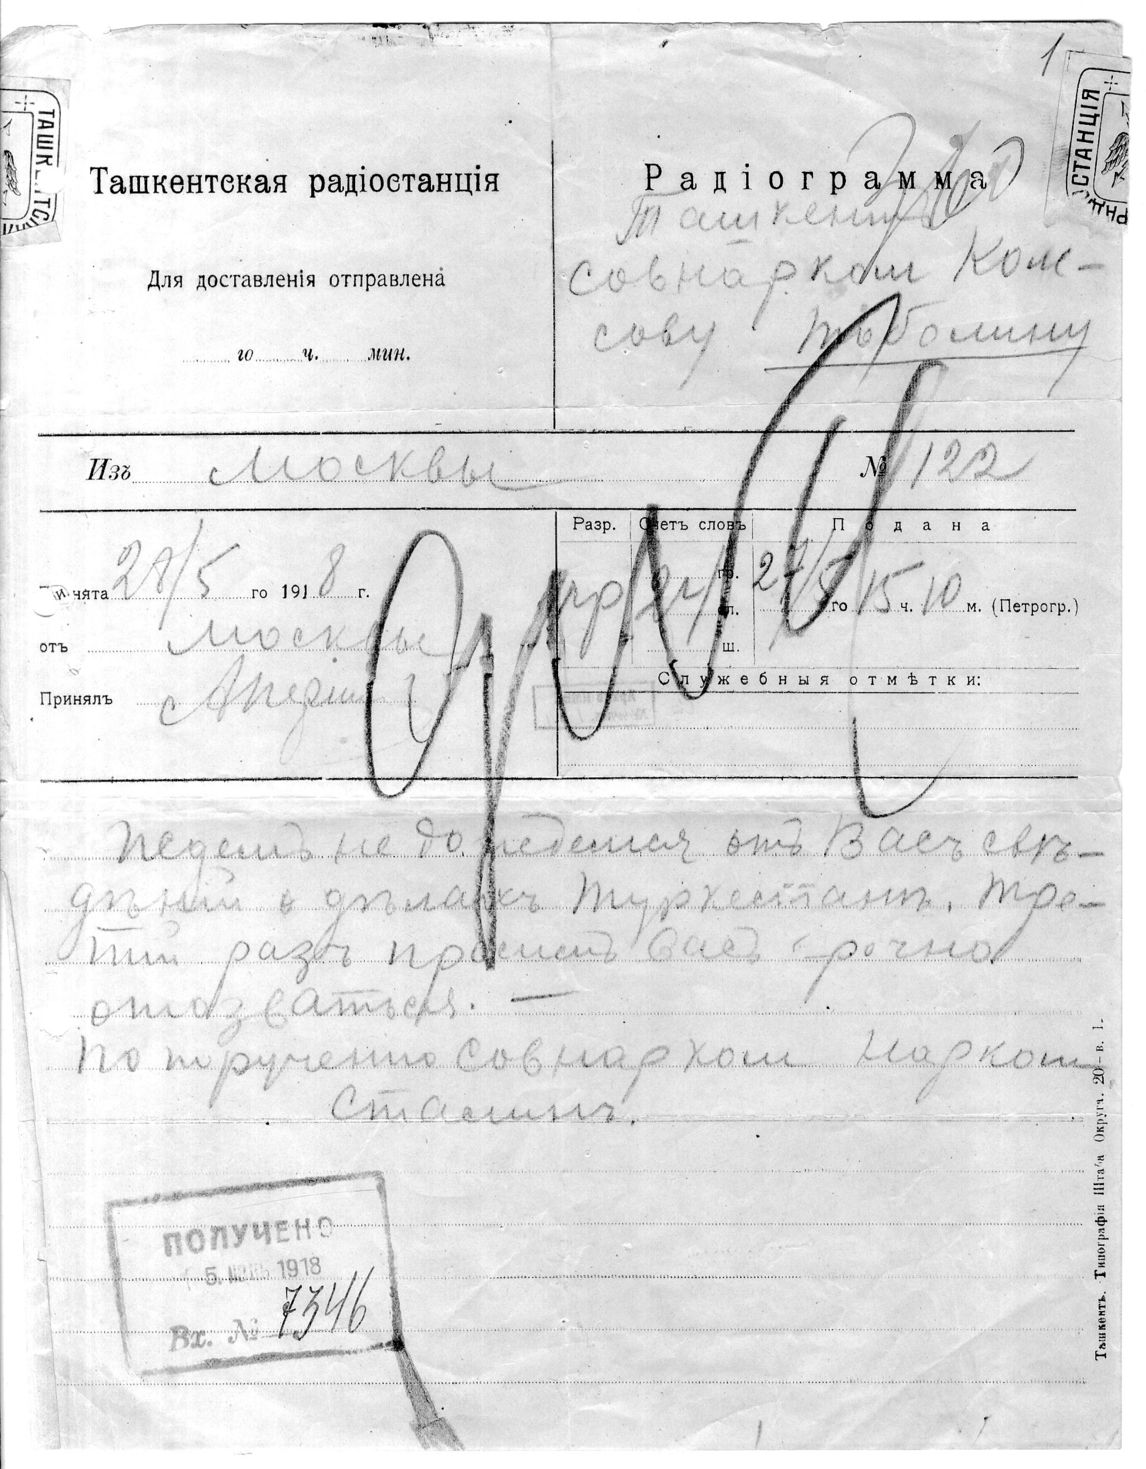 1
ТАШК
СТАНЦІЯ
Ташкентская радіостанція
Радіограмма
Ташкентъ
совнарком Ком-
сову Тоболину
Для доставленія отправлена
го ч. мин.
Изъ Москвы № 122
Разр. Счетъ словъ Подана
27/5 го 15 ч. 10 м. (Петрогр.)
нята 28/5 го 1918 г.
сл.
ш.
отъ Москвы
Служебныя отмѣтки:
Принялъ
не до отъ Васъ свѣ-
дѣній о дѣлахъ Туркестана. Тре-
тій разъ просимъ Васъ срочно
отозваться. —
По порученію Совнарком Нарком
Сталинъ.
ПОЛУЧЕНО
5. 1918
Вх. № 7346
Ташкентъ. Типографія Штаба Округа. 20—в. 1.